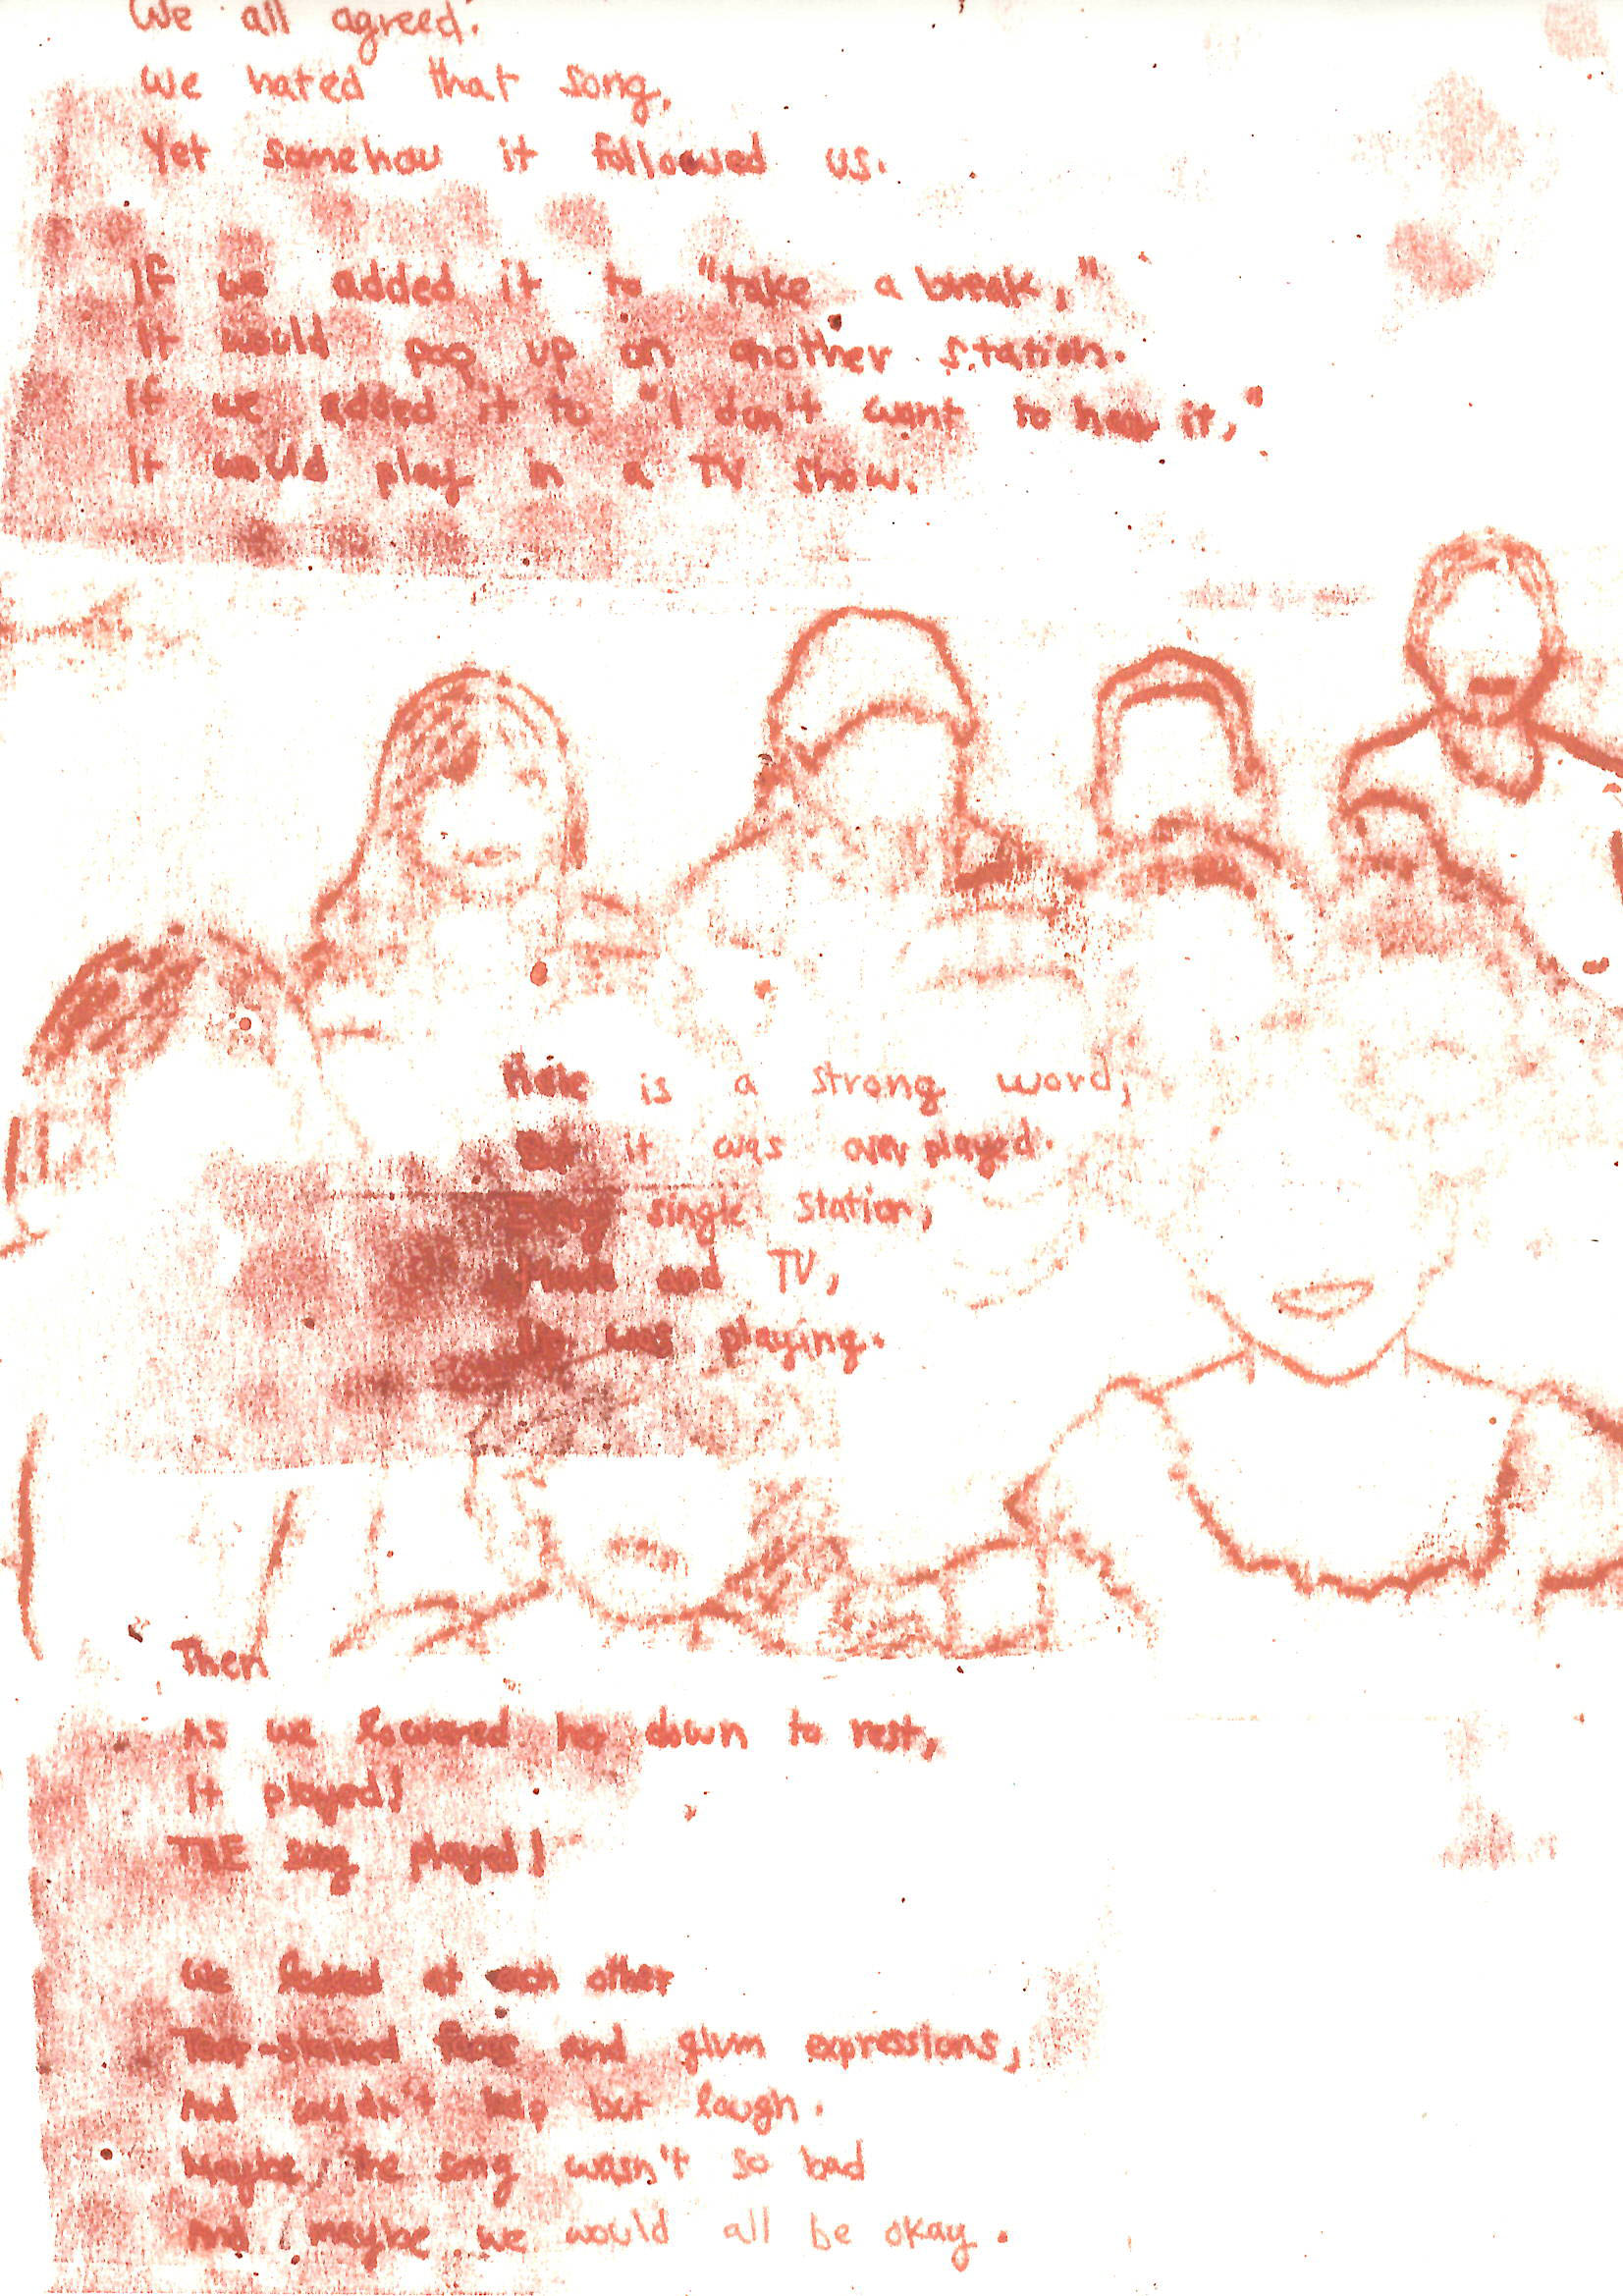 We all agreed.
We hated that song,
Yet somehow it followed us.
If we added it to "take a break,"
It would pop up on another station.
If we added it to "I don't want to hear it,"
It would play in a TV show.
Hate is a strong word,
But it was overplayed.
Every single station,
and TV,
was playing.
Then
As we lowered her down to rest,
It played!
THE song played!
We looked at each other
Tear-stained faces and glum expressions,
And couldn't help but laugh.
Maybe, the song wasn't so bad
And maybe we would all be okay.